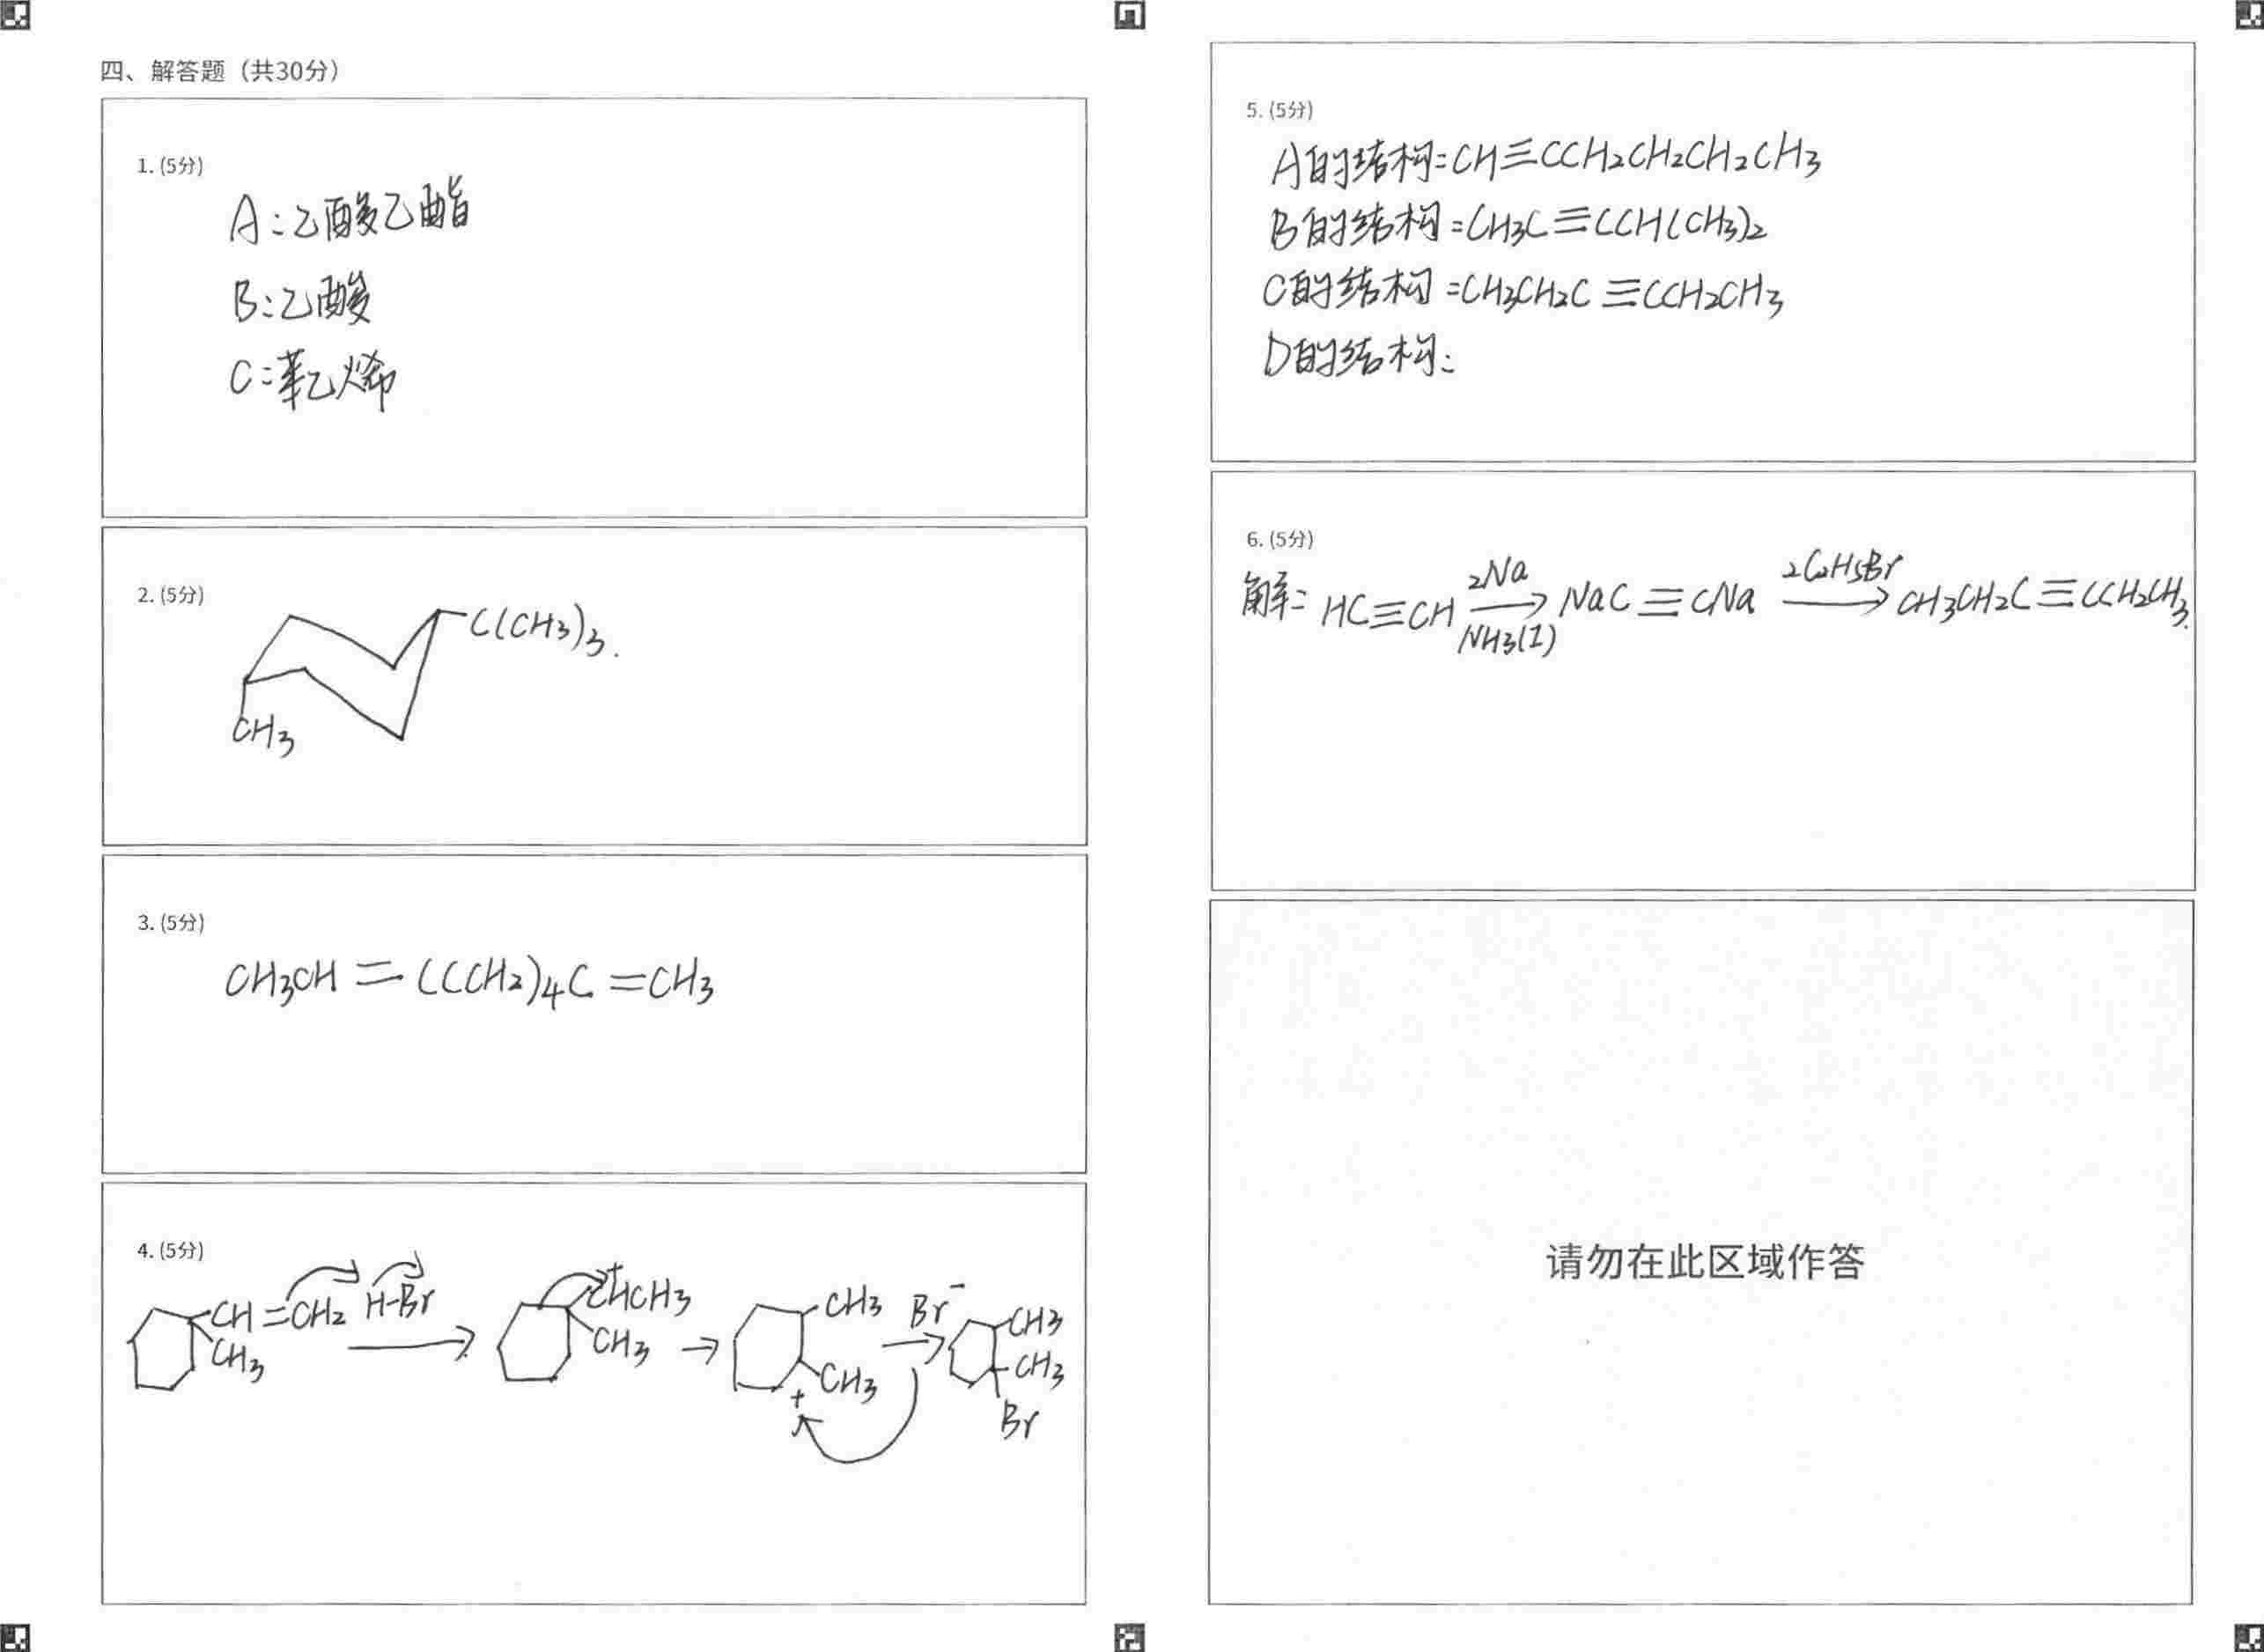 四、解答题（共30分）
1. (5分)
A:乙酸乙酯
B:乙酸
C:苯乙烯
2. (5分)
C(CH3)3.
CH3
3. (5分)
CH3CH=(CCH2)4C=CH3
4. (5分)
CH=CH2 H-Br
CH3
+
CHCH3
CH3
CH3
CH3
+
Br-
CH3
CH3
Br
5. (5分)
A的结构:CH≡CCH2CH2CH2CH3
B的结构:CH3C≡CCH(CH3)2
C的结构:CH3CH2C≡CCH2CH3
D的结构:
6. (5分)
解: HC≡CH 2Na NH3(l) NaC≡CNa 2C2H5Br CH3CH2C≡CCH2CH3.
请勿在此区域作答